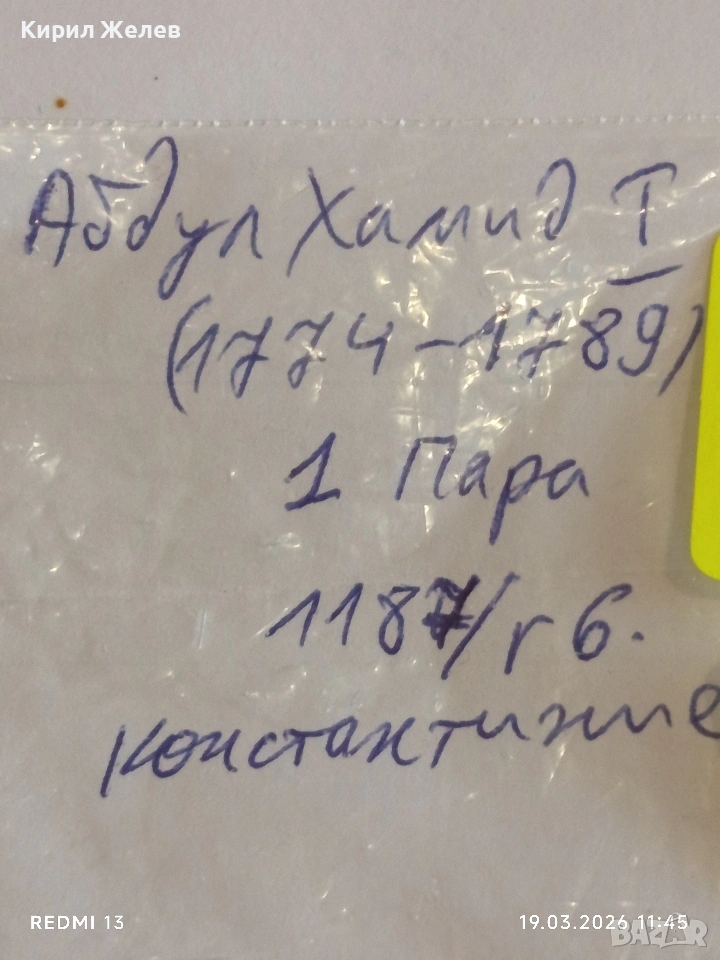 Кирил Желев
Абдул Хамид I
(1774-1789)
1 Пара
1187/г 6.
REDMI 13
19.03.2026 11:45
BAZAR